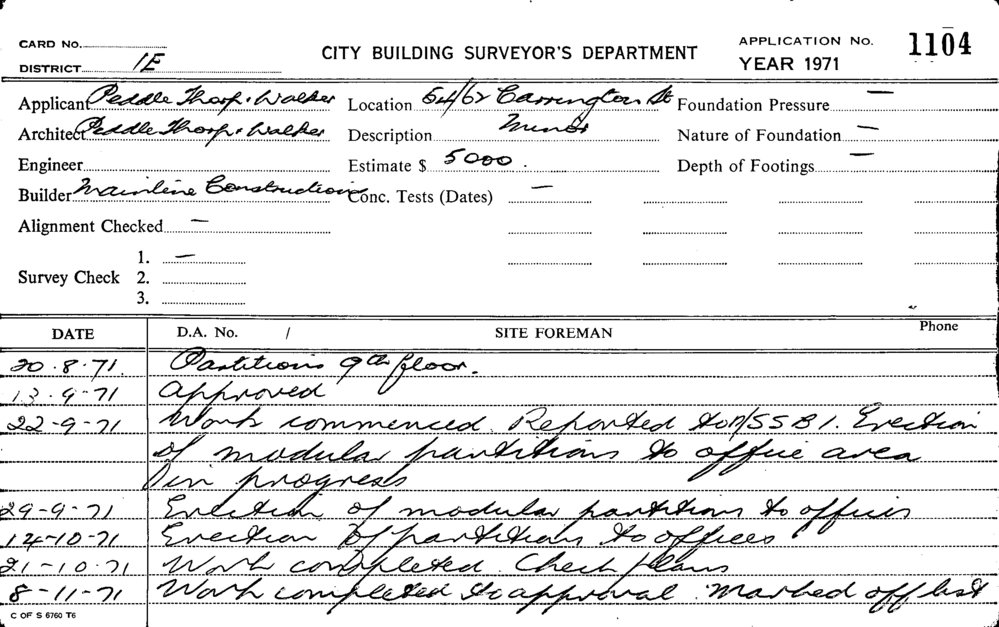 CARD No.
DISTRICT 1E
CITY BUILDING SURVEYOR'S DEPARTMENT
APPLICATION No. 1104
YEAR 1971
Applicant Peddle Thorp & Walker
Location 54/62 Carrington St
Foundation Pressure —
Architect Peddle Thorp & Walker
Description Minor
Nature of Foundation —
Engineer
Estimate $ 5000.
Depth of Footings —
Builder Mainline Constructions
Conc. Tests (Dates) —
Alignment Checked —
Survey Check 1. —
2.
3.
DATE D.A. No. / SITE FOREMAN Phone
20.8.71. Partitions 9th floor.
13.9.71 Approved
22-9-71 Work commenced. Reported to SSB1. Erection
of modular partitions to office area
in progress
29-9-71 Erection of modular partitions to offices
14-10-71 Erection of partitions to offices
21-10.71 Work completed. Check plans
8-11-71 Work completed to approval. Marked off list
C OF S 6760 T6